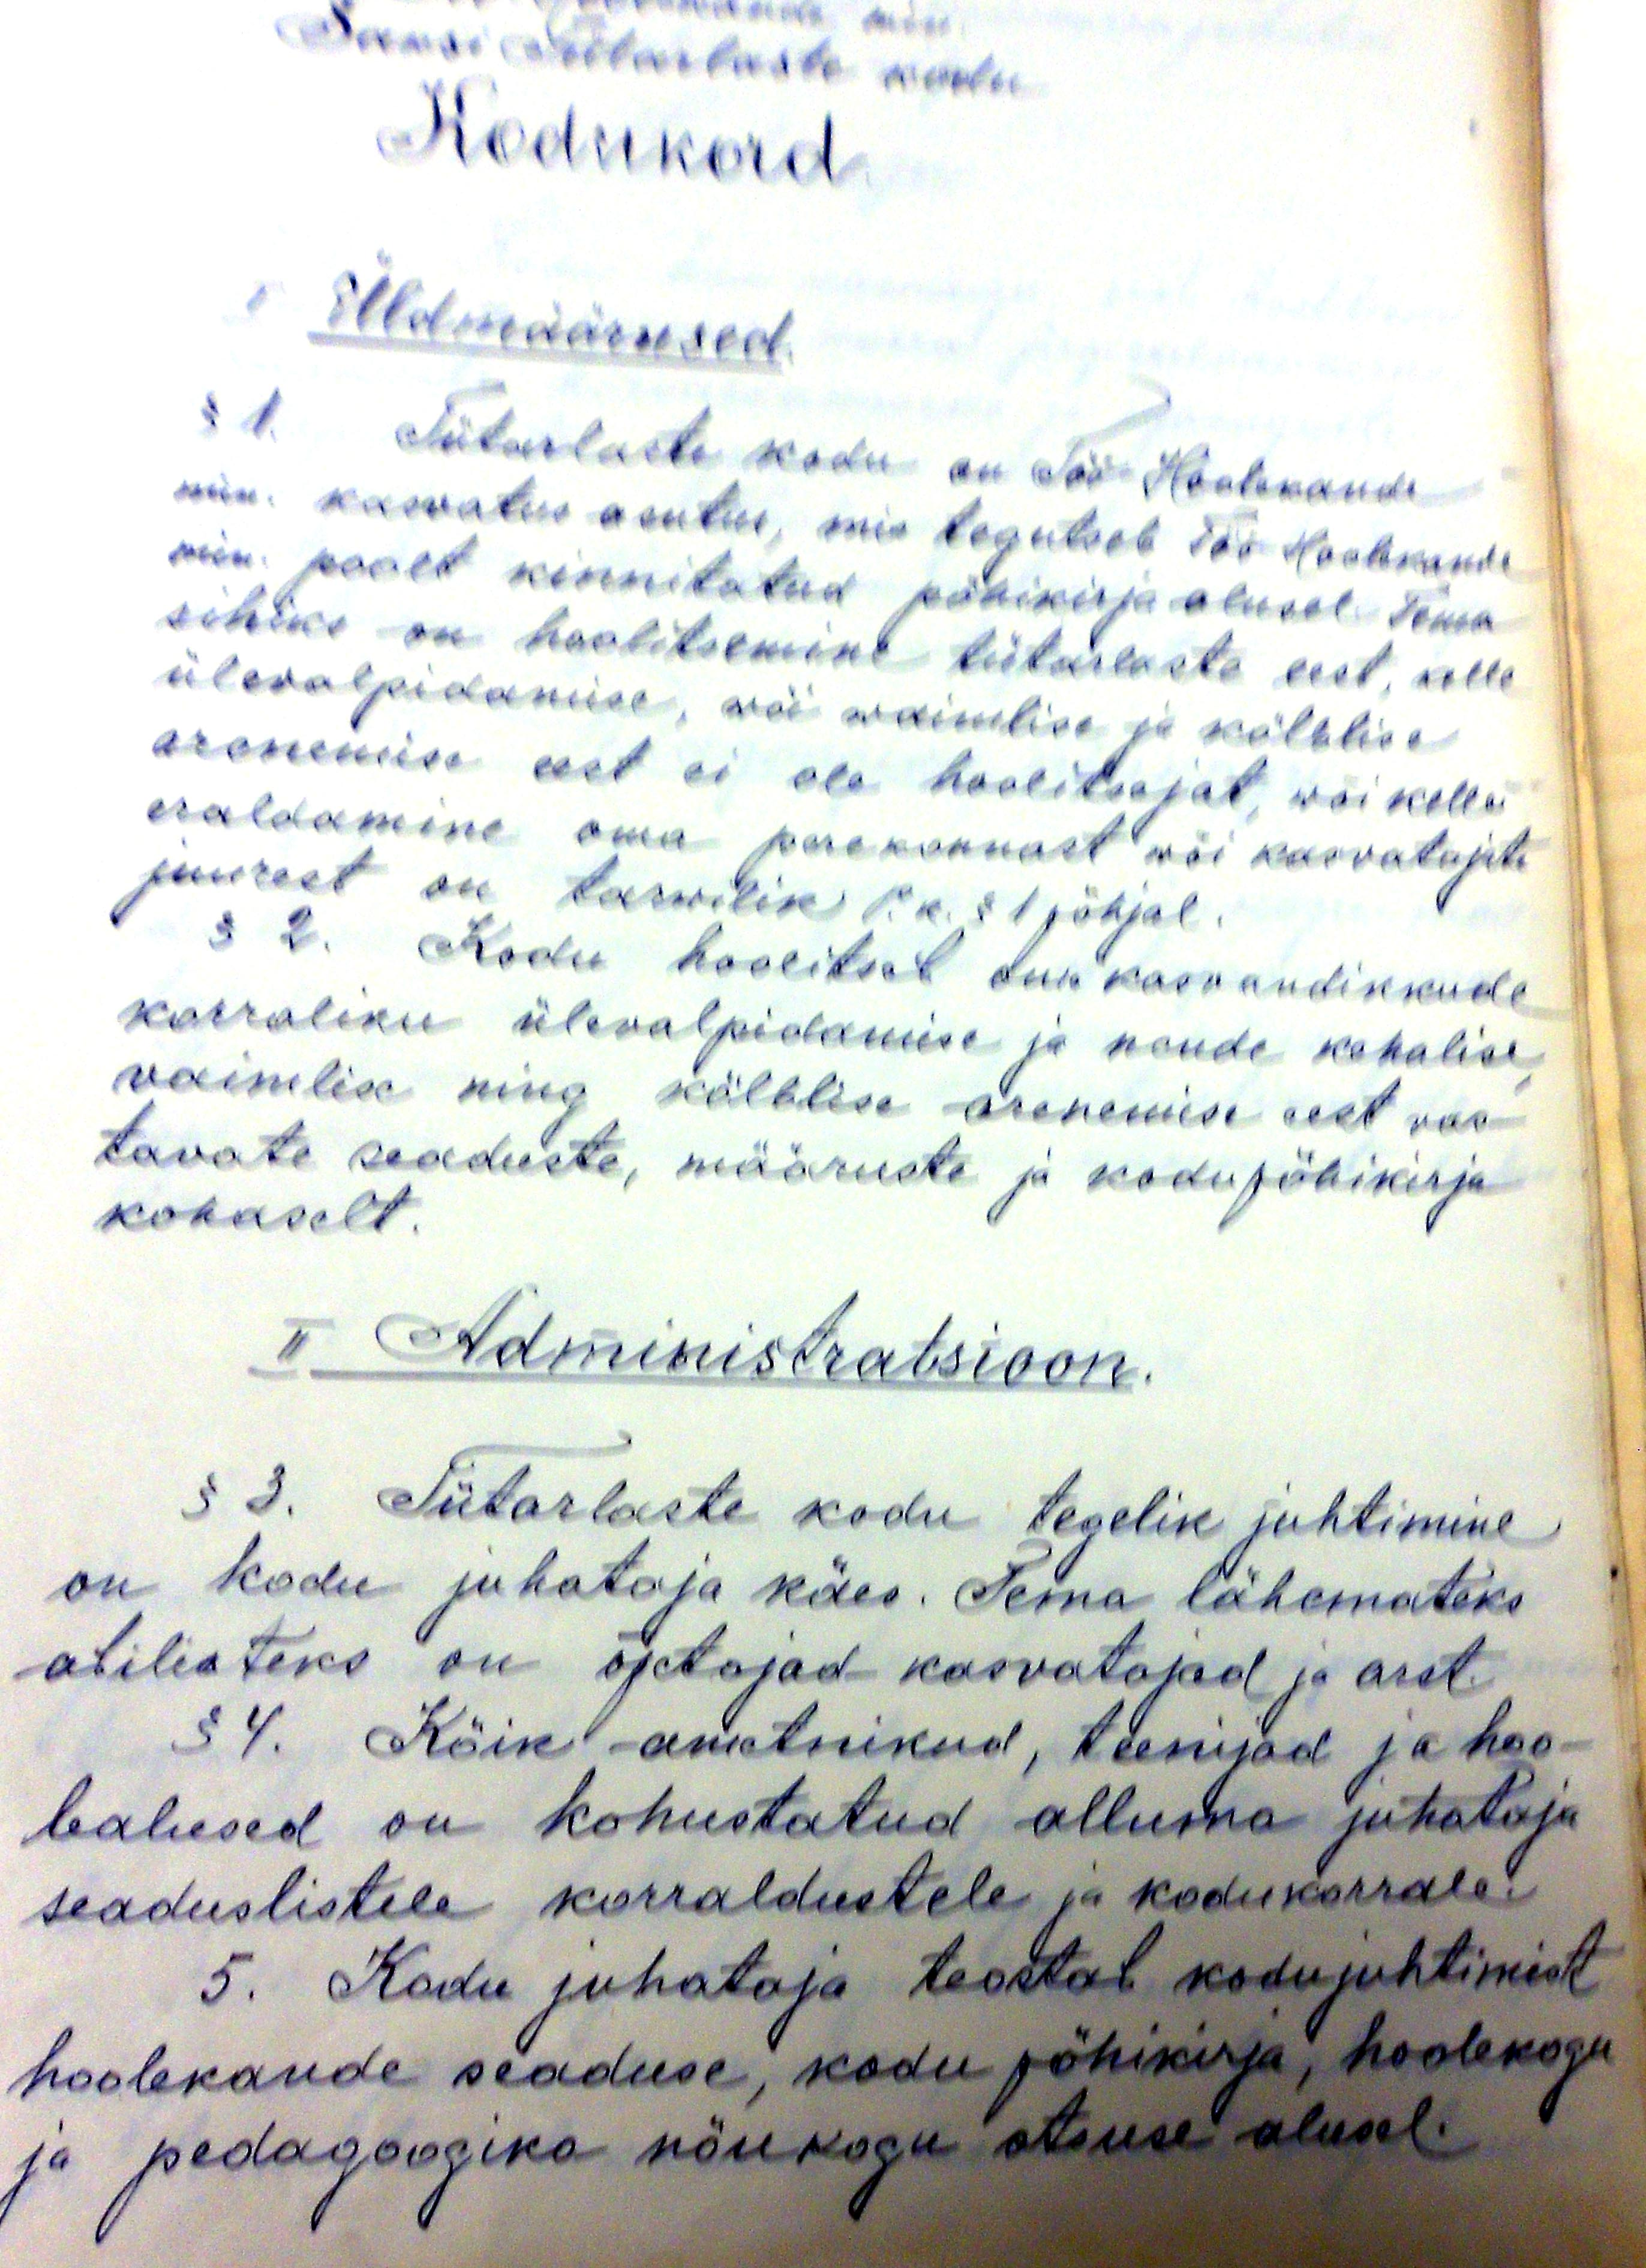 min.
Tütarlaste kodu
Kodukord
I Üldmäärused.
§ 1. Tütarlaste kodu on Töö-Hoolekande
min. kasvatus asutus, mis tegutseb Töö-Hoolekande
min. poolt kinnitatud põhikirja alusel. Tema
sihiks on hoolitsemine tütarlaste eest, kelle
ülevalpidamise, wõi waimlise ja kõlblise
arenemise eest ei ole hoolitsejat, wõi kelle
eraldamine oma perekonnast wõi kasvatajate
juurest on tarwilik P.k. § 1 põhjal.
§ 2. Kodu hoolitseb oma kasvandikkude
korraliku ülevalpidamise ja nende kehalise,
vaimlise ning kõlblise arenemise eest vas-
tavate seaduste, määruste ja kodu põhikirja
kohaselt.
II Administratsioon.
§ 3. Tütarlaste kodu tegelik juhtimine
on kodu juhataja käes. Tema lähemateks
abilisteks on õpetajad kasvatajad ja arst.
§ 4. Kõik ametnikud, teenijad ja hoo-
lealused on kohustatud alluma juhataja
seaduslistele korraldustele ja kodukorrale.
5. Kodu juhataja teostab kodu juhtimist
hoolekande seaduse, kodu põhikirja, hoolekogu
ja pedagoogika nõukogu otsuse alusel.